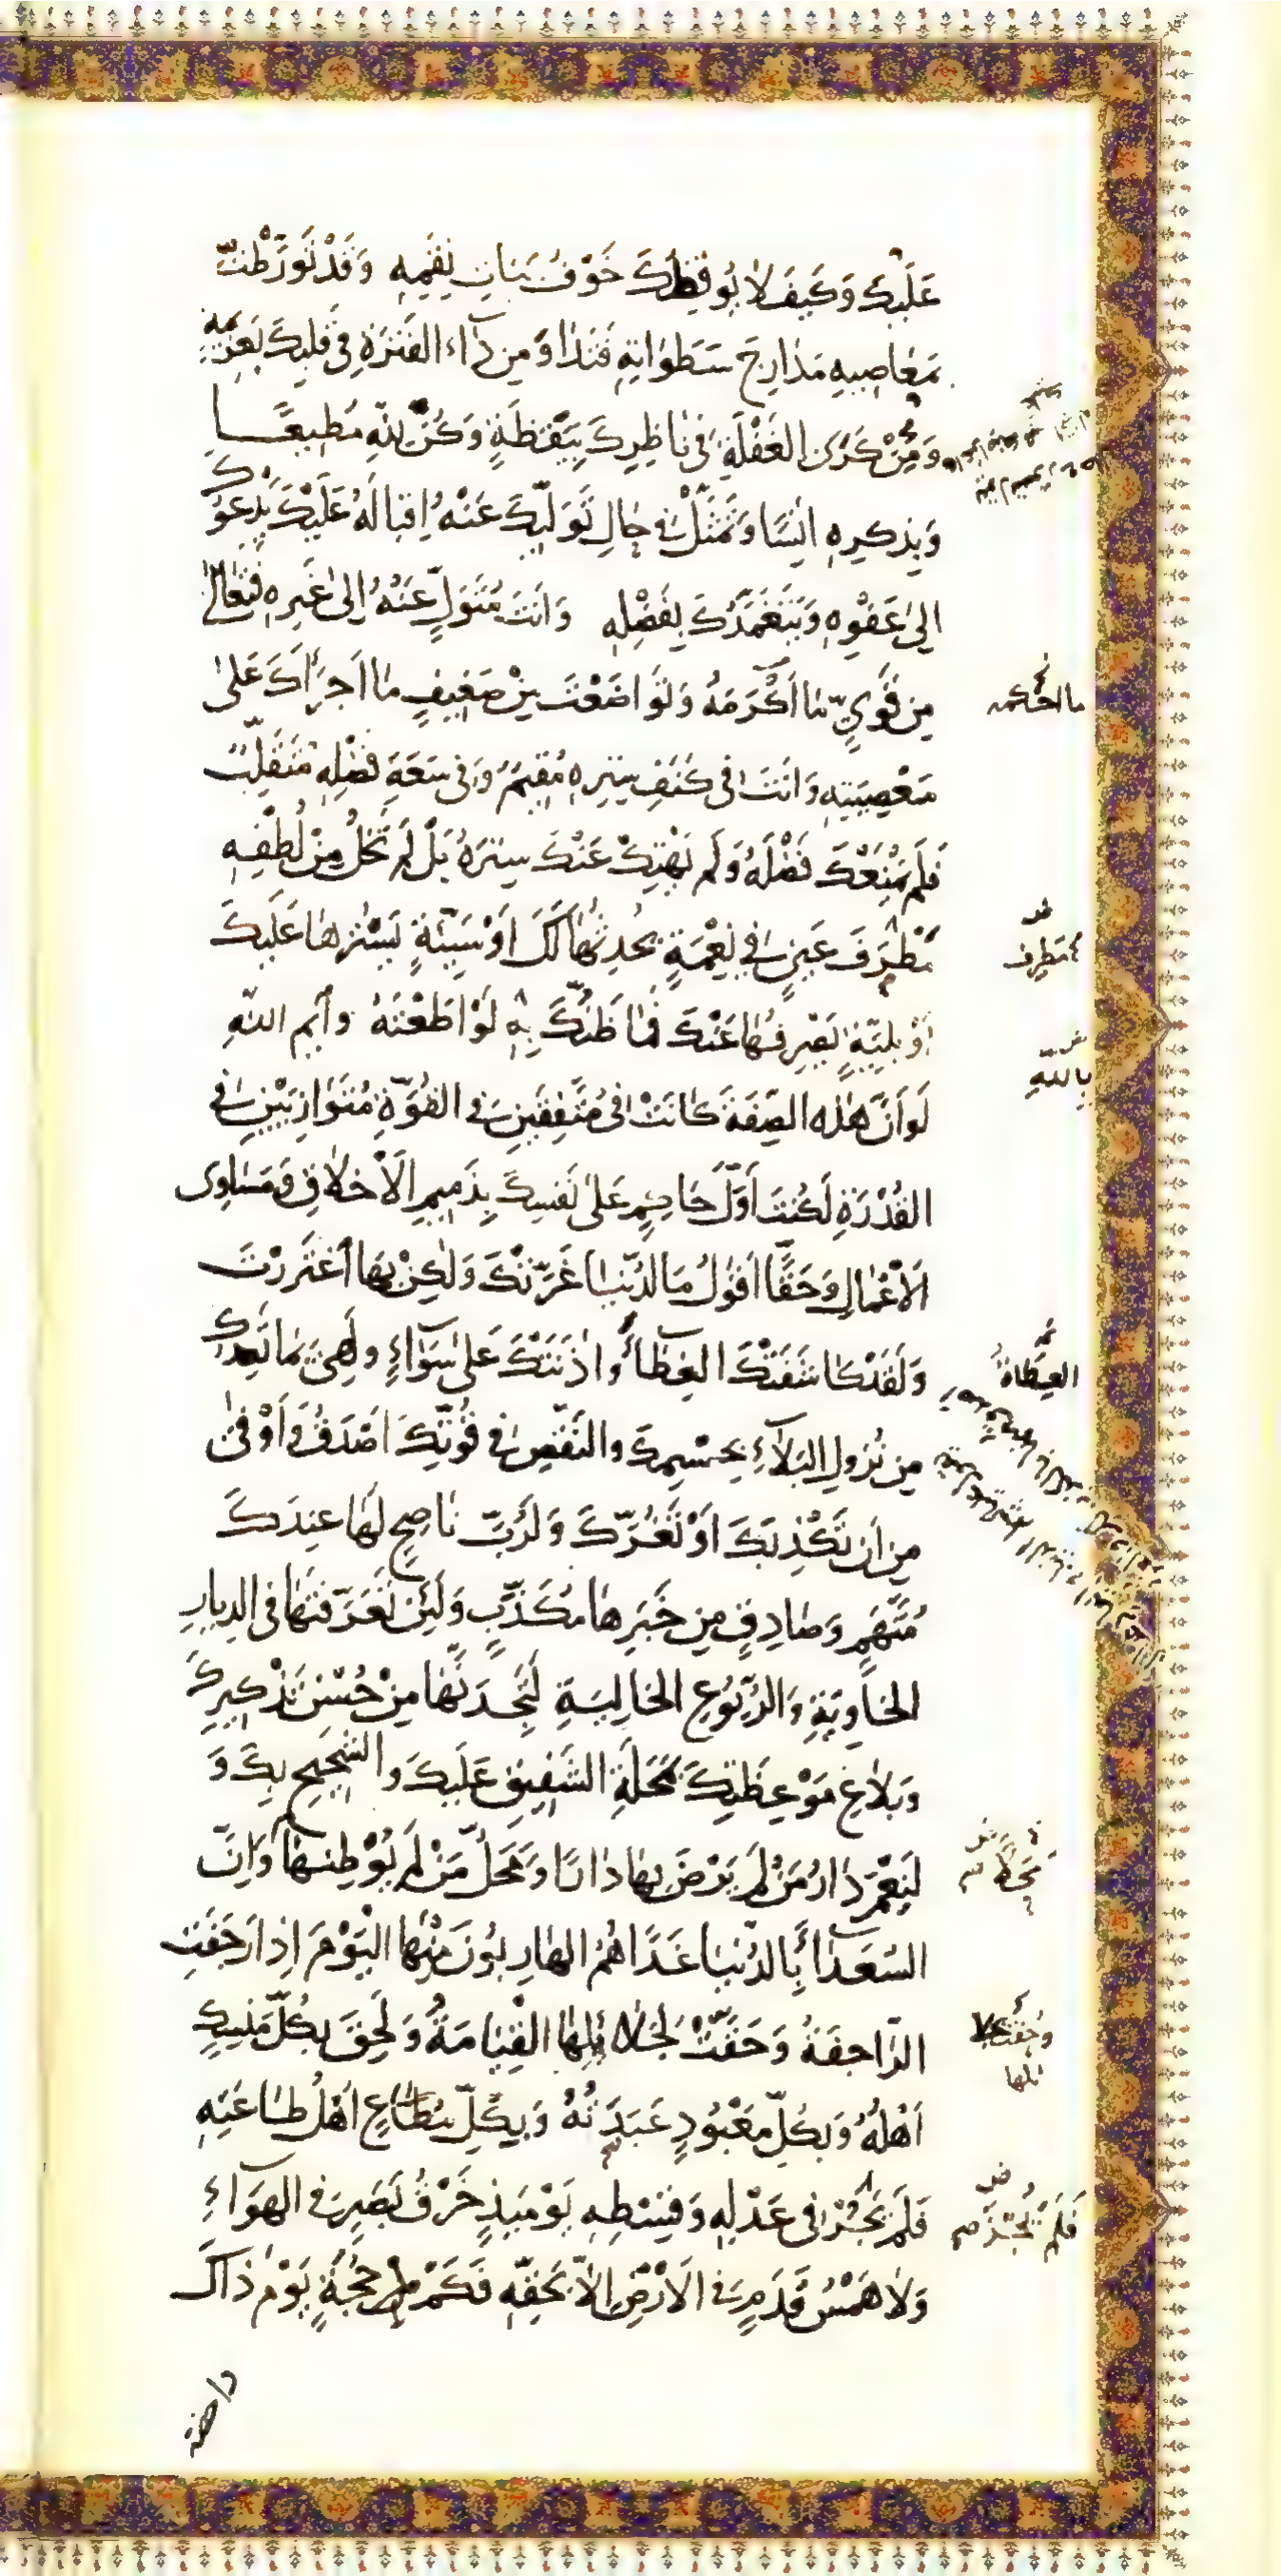 عَلَيْكَ وَكَيْفَ لَا يُوقِظُكَ خَوْفُ بَيَاتِ نِقَمِهِ وَقَدْ تَوَرَّطْتَ
بِمَعَاصِيهِ مَدَارِجَ سَطَوَاتِهِ فَتَدَاوَ مِن دَآءِ الْفَتْرَةِ فِي قَلْبِكَ بِعَزِيمَةٍ
وَمِنْ كَرَى الْغَفْلَةِ فِي نَاظِرِكَ بِيَقَظَةٍ وَكُنْ لِلّهِ مُطِيعًا
وَبِذِكْرِهِ انِسًا وَتَمَثَّلْ فِي حَالِ تَوَلِّيكَ عَنْهُ إِقْبَالَهُ عَلَيْكَ يَدْعُوكَ
إِلى عَفْوِهِ وَيَتَغَمَّدُكَ بِفَضْلِهِ وَأَنْتَ مُتَوَلٍّ عَنْهُ إِلى غَيْرِهِ فَتَعَالى
مِن قَوِيٍّ مَا أَكْرَمَهُ وَتَوَاضَعْتَ مِنْ ضَعِيفٍ مَا اَجْرَأَكَ عَلى
مَعْصِيَتِهِ وَاَنْتَ فِي كَنَفِ سِتْرِهِ مُقِيمٌ وَفِي سَعَةِ فَضْلِهِ مُتَقَلِّبٌ
فَلَمْ يَمْنَعْكَ فَضْلَهُ وَلَمْ يَهْتِكْ عَنْكَ سِتْرَهُ بَلْ لَمْ تَخْلُ مِنْ لُطْفِهِ
مَطْرَفَ عَيْنٍ فِي نِعْمَةٍ يُحْدِثُهَا لَكَ اَوْ سَيِّئَةٍ يَسْتُرُهَا عَلَيْكَ
اَوْ بَلِيَّةٍ يَصْرِفُهَا عَنْكَ فَمَا ظَنُّكَ بِهِ لَوْ اَطَعْتَهُ وَاَيْمُ اللّهِ
لَوْ اَنَّ هٰذِهِ الصِّفَةَ كَانَتْ فِي مُتَّفِقَيْنِ فِي الْقُوَّةِ مُتَوَازِيَيْنِ فِي
الْقُدْرَةِ لَكُنْتَ اَوَّلَ حَاكِمٍ عَلى نَفْسِكَ بِذَمِيمِ الْاَخْلَاقِ وَمَسَاوِى
الْاَعْمَالِ وَحَقًّا اَقُولُ مَا الدُّنْيَا غَرَّتْكَ وَلكِنْ بِهَا اغْتَرَرْتَ
وَلَقَدْ كَاشَفَتْكَ الْعِظَاتُ وَاذَنَتْكَ عَلى سَوَآءٍ وَلَهِيَ بِمَا تَعِدُكَ
مِن نُزُولِ الْبَلَآءِ بِجِسْمِكَ وَالنَّقْصِ فِي قُوَّتِكَ اَصْدَقُ وَاَوْفى
مِن اَن تَكْذِبَكَ اَوْ تَغُرَّكَ وَلَرُبَّ نَاصِحٍ لَهَا عِنْدَكَ
مُتَّهَمٍ وَصَادِقٍ مِن خَبَرِهَا مُكَذَّبٍ وَلَئِن تَعَرَّفْتَهَا فِي الدِّيَارِ
الْخَاوِيَةِ وَالرُّبُوعِ الْخَالِيَةِ لَتَجِدَنَّهَا مِنْ حُسْنِ تَذْكِيرِكَ
وَبَلَاغِ مَوْعِظَتِكَ بِمَحَلَّةِ الشَّفِيقِ عَلَيْكَ وَالشَّحِيحِ بِكَ وَ
لَنِعْمَ دَارُ مَنْ لَمْ يَرْضَ بِهَا دَارًا وَمَحَلُّ مَنْ لَمْ يُوَطِّنْهَا وَاِنَّ
السُّعَدَآءَ بِالدُّنْيَا غَدًا هُمُ الْهَارِبُونَ مِنْهَا الْيَوْمَ اِذَا رَجَفَتِ
الرَّاجِفَةُ وَحَقَّتْ بِجَلَائِلِهَا الْقِيَامَةُ وَلَحِقَ بِكُلِّ مَنْسَكٍ
اَهْلُهُ وَبِكُلِّ مَعْبُودٍ عَبَدَتُهُ وَبِكُلِّ مُطَاعٍ اَهْلُ طَاعَتِهِ
فَلَمْ يَجْرِ فِي عَدْلِهِ وَقِسْطِهِ يَوْمَئِذٍ خَرْقُ بَصَرٍ فِي الْهَوَآءِ
وَلَا هَمْسُ قَدَمٍ فِي الْاَرْضِ اِلَّا بِحَقِّهِ فَكَمْ حُجَّةٍ يَوْمَ ذَاكَ
داحضة
ما احكمه
مَطرِف
بِاللّهِ
العِظَاةُ
مَحَلَّ
وحُقَّتْ
ئلها
فَلَمْ يُجْزَ